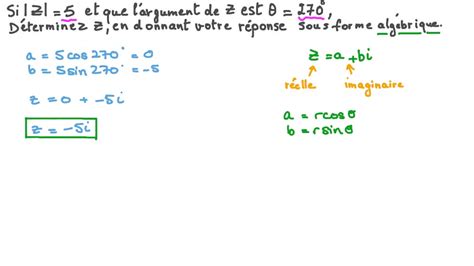 Si |z| = 5 et que l'argument de z est θ = 270°,
Déterminez z, en donnant votre réponse sous forme algébrique.
a = 5 cos 270° = 0
b = 5 sin 270° = -5
z = 0 + -5i
z = -5i
z = a + bi
réelle imaginaire
a = r cos θ
b = r sin θ